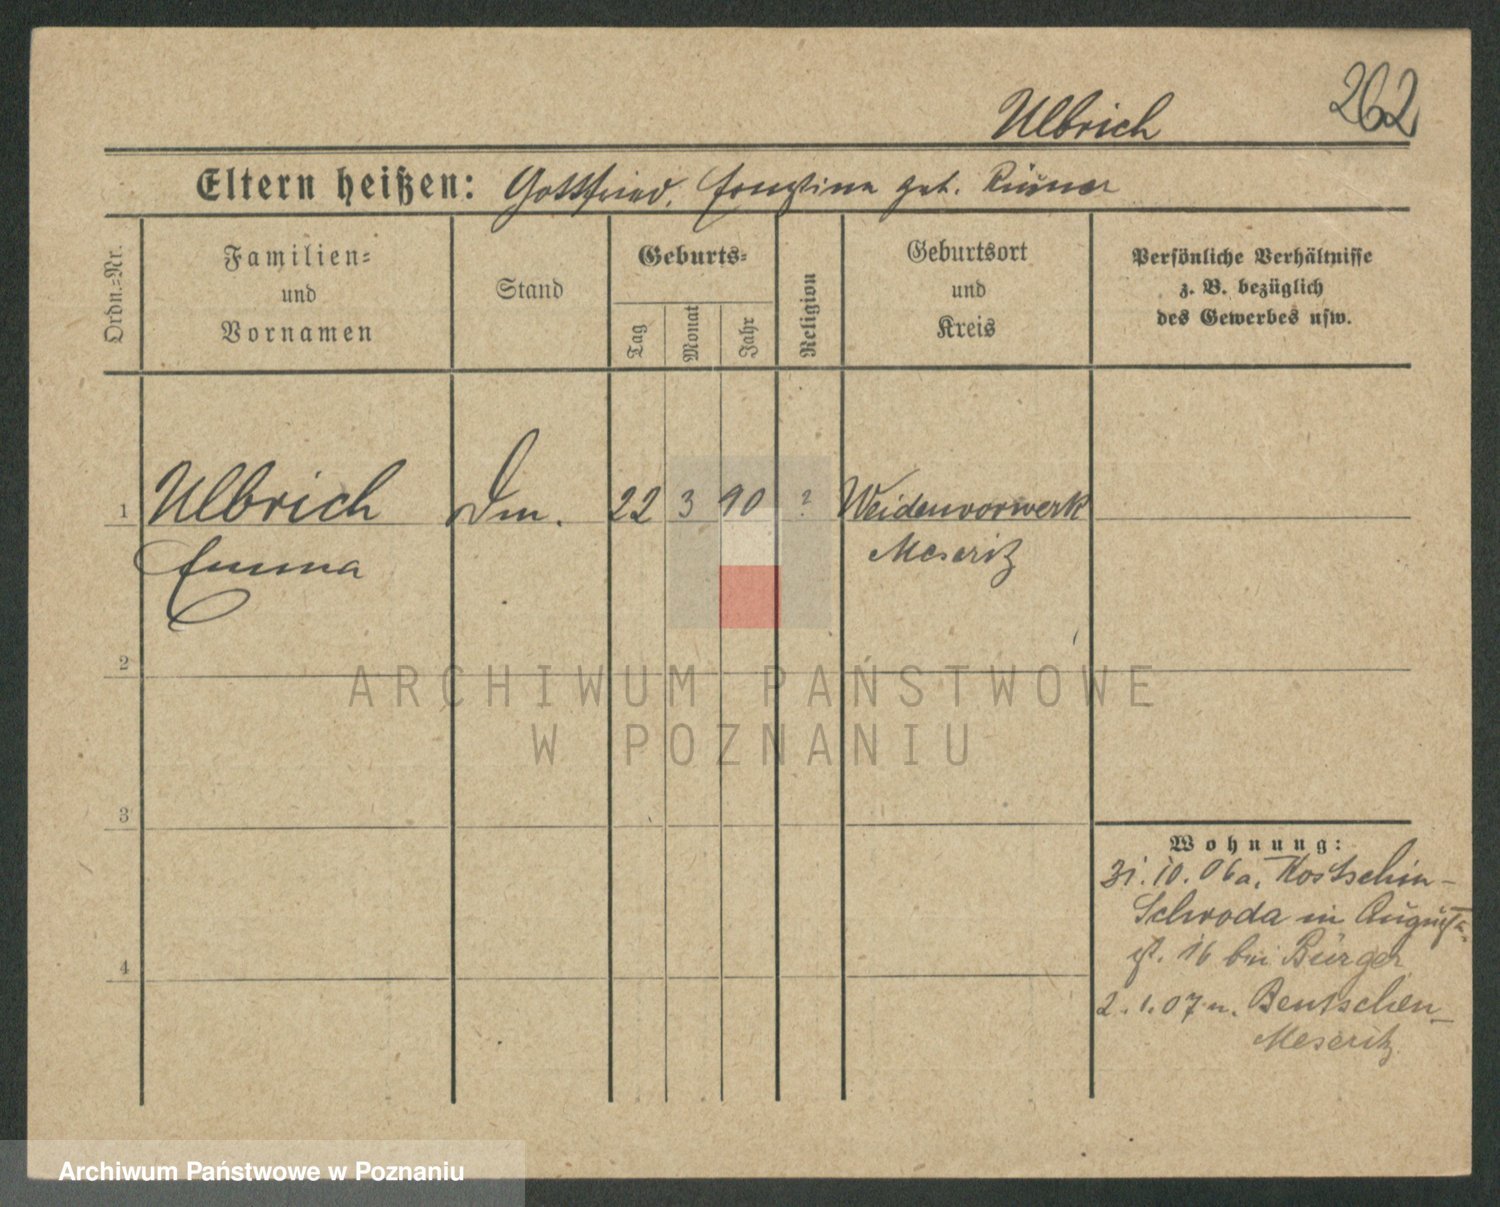 262
Ulbrich
Eltern heißen: Gottfried, Ernestine geb.
Ordn.=Nr.
Familien=
und
Vornamen
Stand
Geburts=
Tag
Monat
Jahr
Religion
Geburtsort
und
Kreis
Persönliche Verhältnisse
z. B. bezüglich
des Gewerbes usw.
1 Ulbrich Dm. 22 3 90 ? Weidenvorwerk
Emma Meseritz
2
ARCHIWUM PAŃSTWOWE
W POZNANIU
3
4
Wohnung:
31.10.06 a. Kostschin-
Schroda in Augusta
st. 16 bei Bürger
2.1.07 n. Bentschen-
Meseritz
Archiwum Państwowe w Poznaniu